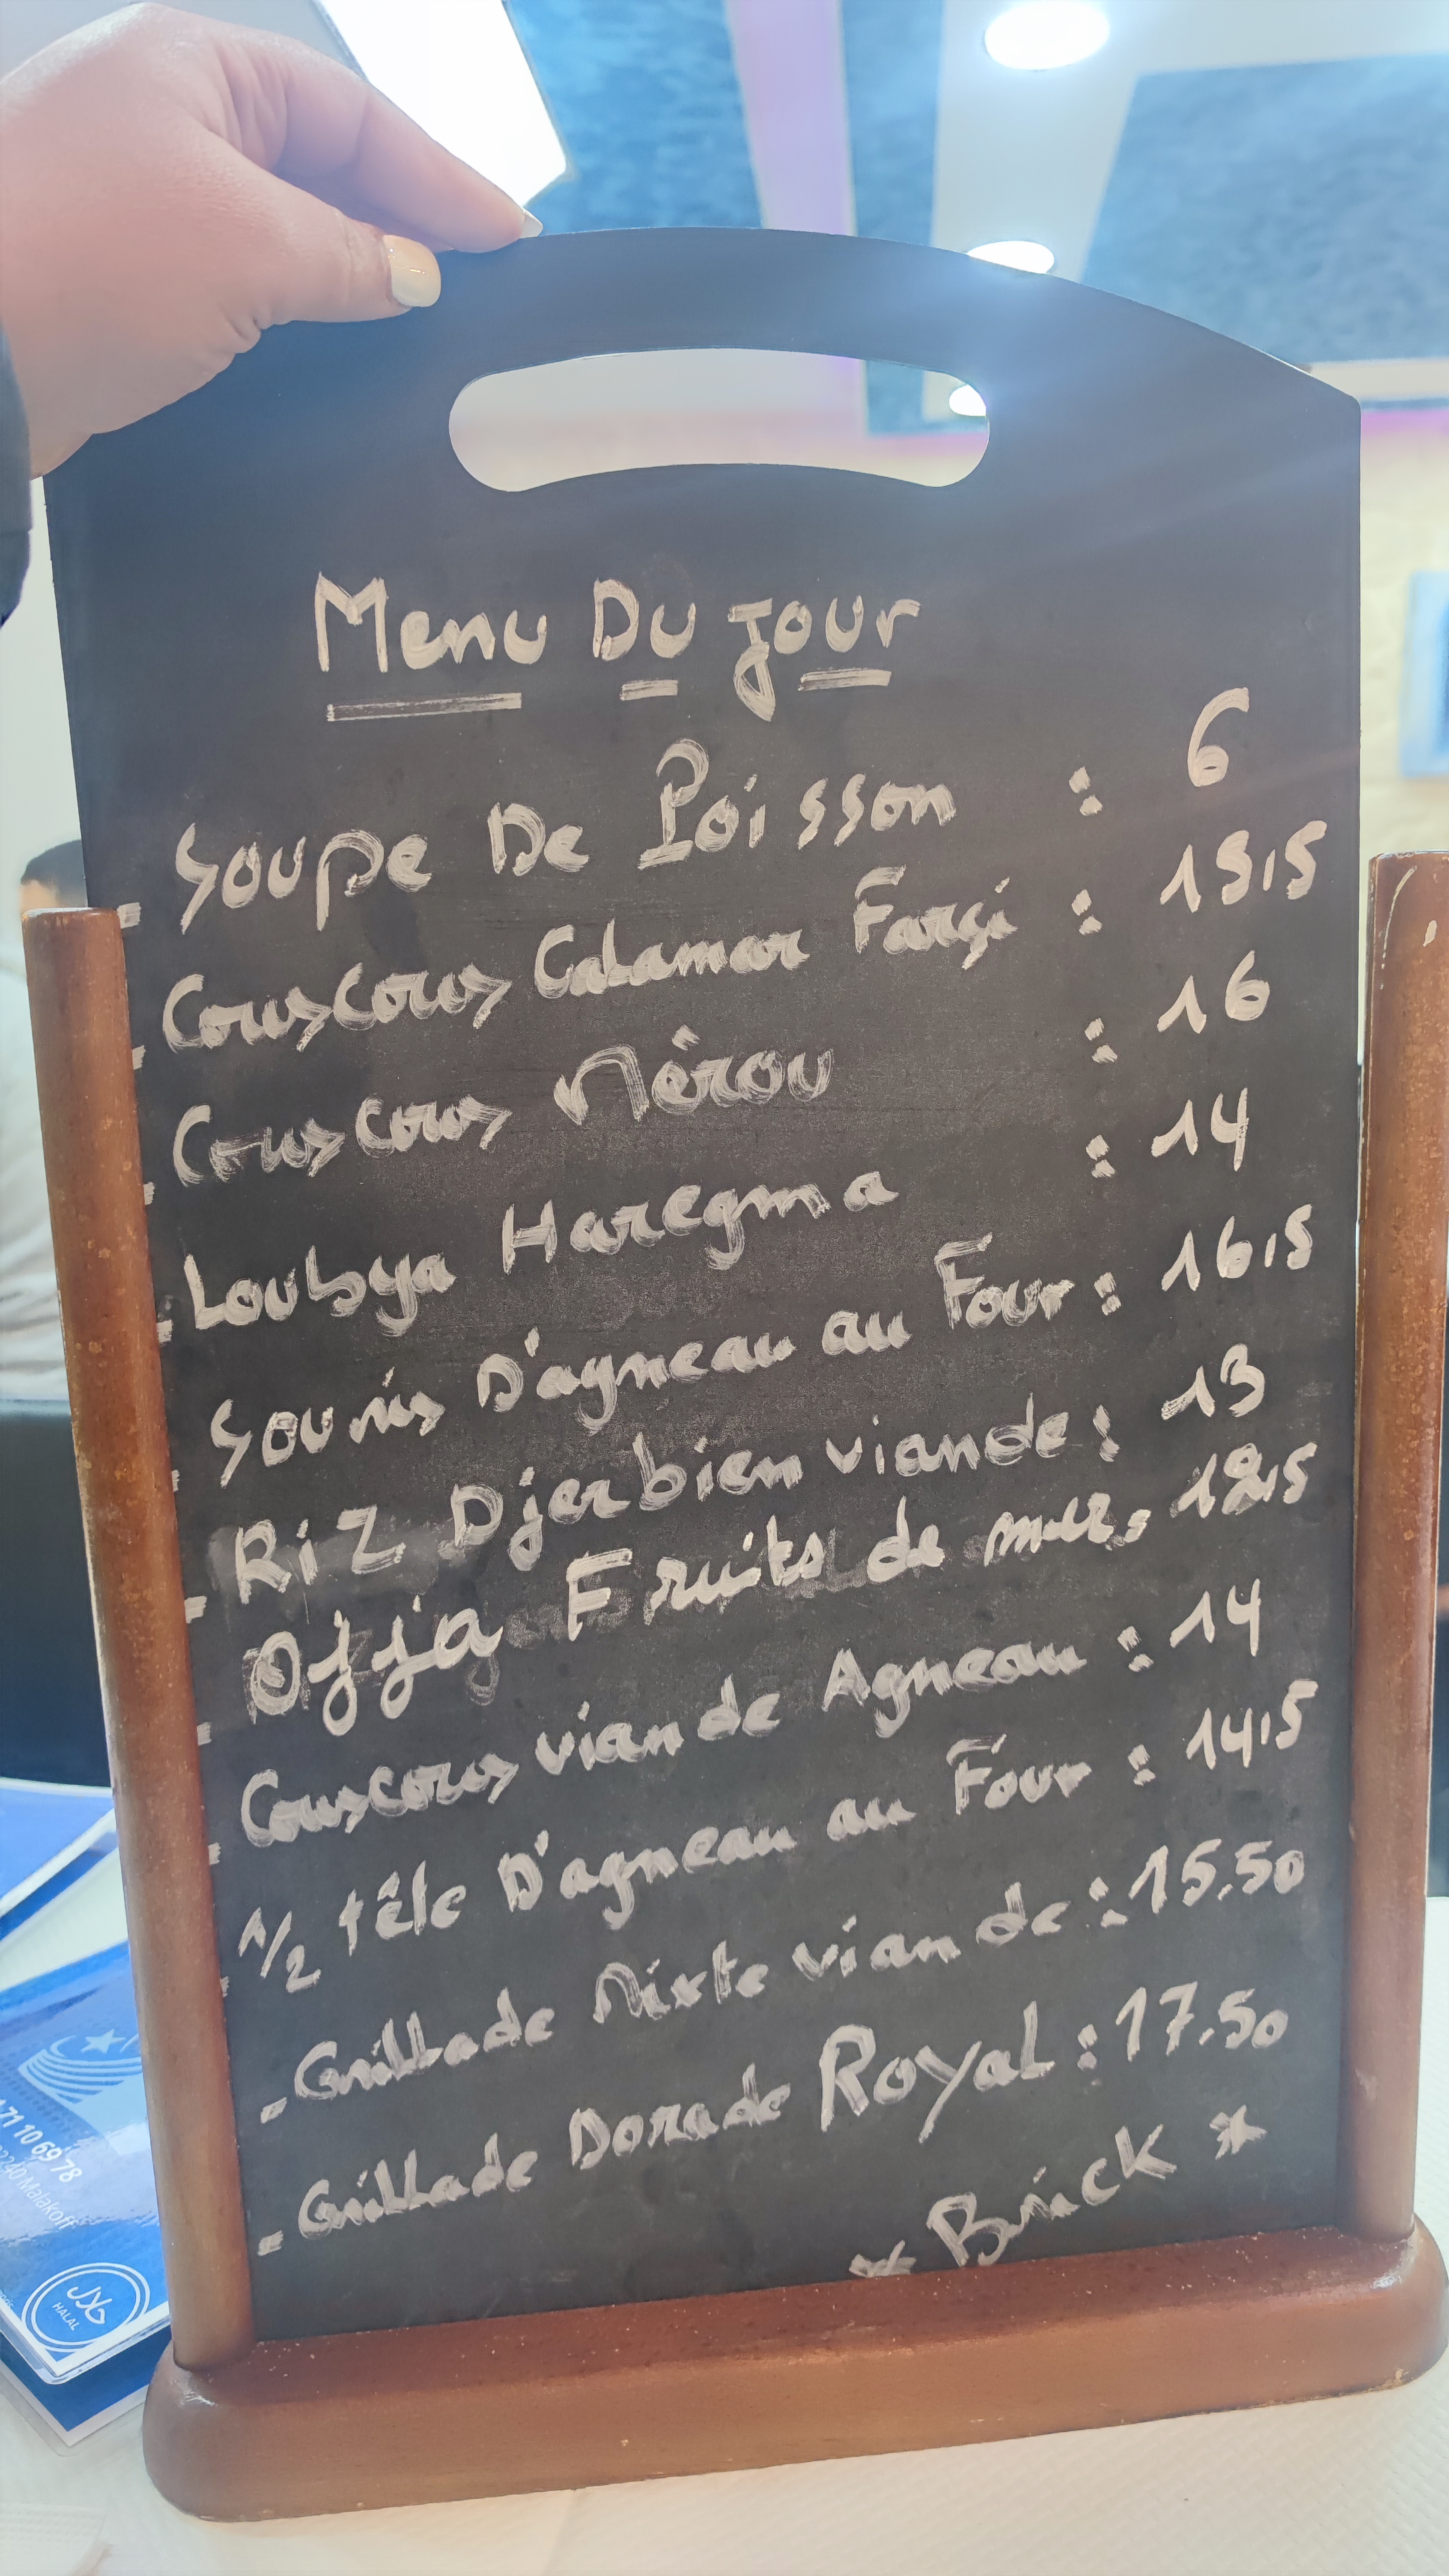 Menu Du jour
- Soupe De Poisson : 6
- Couscous Calamar Farçi : 15,5
- Couscous Mérou : 16
- Loubya Haregma : 14
- Souris D'agneau au Four : 16,5
- RiZ Djerbien viande : 13
- Ojja Fruits de mer : 12,5
- Couscous viande Agneau : 14
- 1/2 tête D'agneau au Four : 14,5
- Grillade Mixte viande : 15.50
- Grillade Dorade Royal : 17.50
* Brick *
71 10 69 78
Malakoff
حلال
HALAL